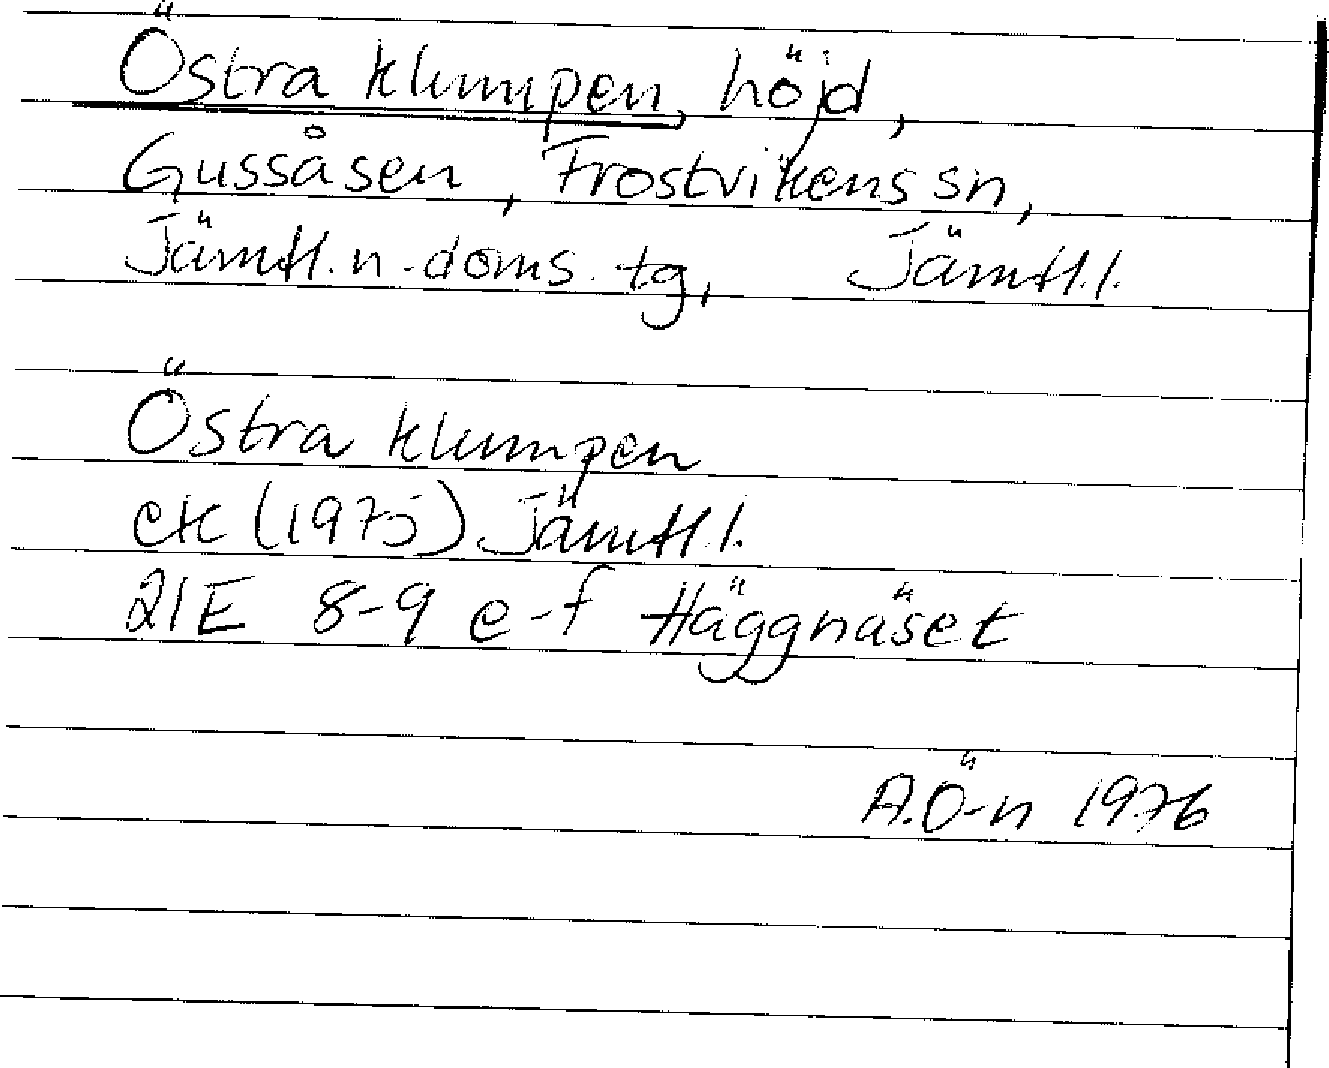 Östra klumpen, höjd,
Gussåsen, Frostvikens sn,
Jämtl. n. doms. tg, Jämtl. l.
Östra klumpen
ek (1975) Jämtl. l.
21E 8-9 e-f Häggnäset
A.Ö-n 1976